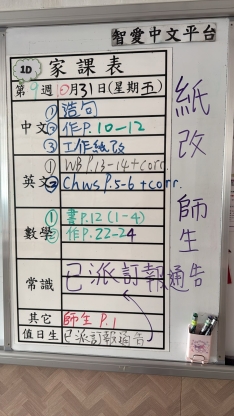 智愛中文平台
1D 家課表
第9週10月31日(星期五)
中文 ① 造句
② 作P.10-12
③ 工作紙改
英文 ① WB P.13-14+corr
② Chws P.5-6+corr.
數學 ① 書P.12 (1-4)
② 作P.22-24
常識 已派訂報通告
其它 師生 P.1
值日生 已派訂報通告
紙改師生